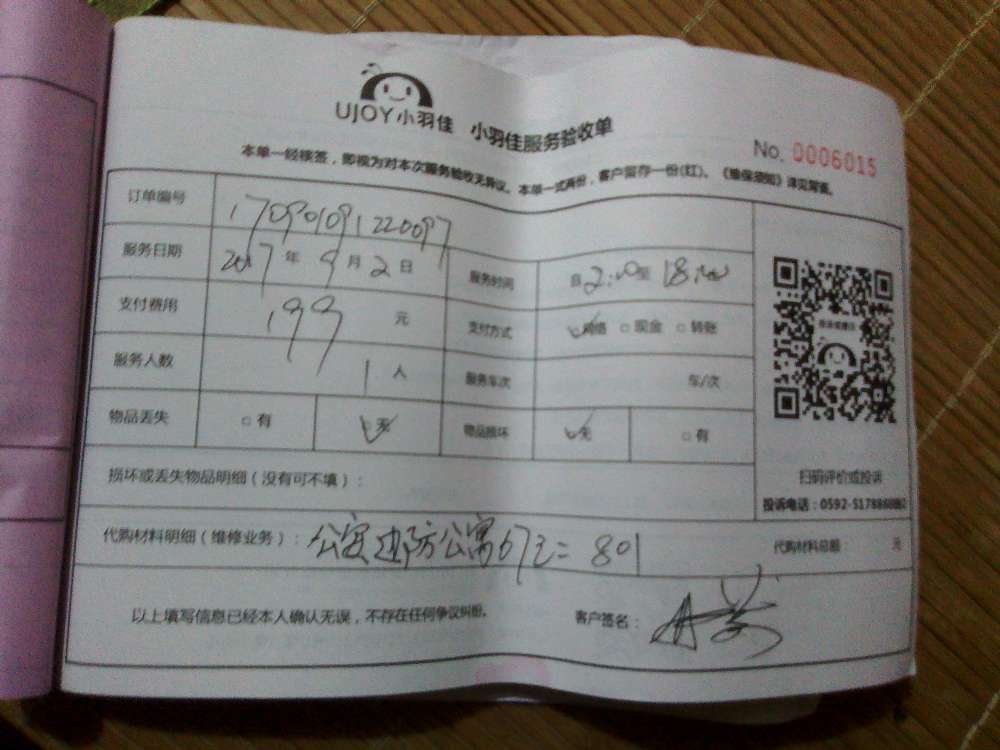 UJOY小羽佳 小羽佳服务验收单
No. 0006015
本单一经核签，即视为对本次服务验收无异议。本单一式两份，客户留存一份(红)、《维保须知》详见背面。
订单编号 170901091220097
服务日期 2017年9月2日 服务时间 自2:00至18:00
支付费用 199元 支付方式 网络 □现金 □转账
服务人数 1人 服务车次 车/次
物品丢失 □有 □无 物品损坏 □无 □有
扫码评价或投诉
损坏或丢失物品明细（没有可不填）：
投诉电话：0592-5178868
代购材料明细（维修业务）：公安边防公寓67 801 代购材料总额 元
以上填写信息已经本人确认无误，不存在任何争议纠纷。 客户签名：